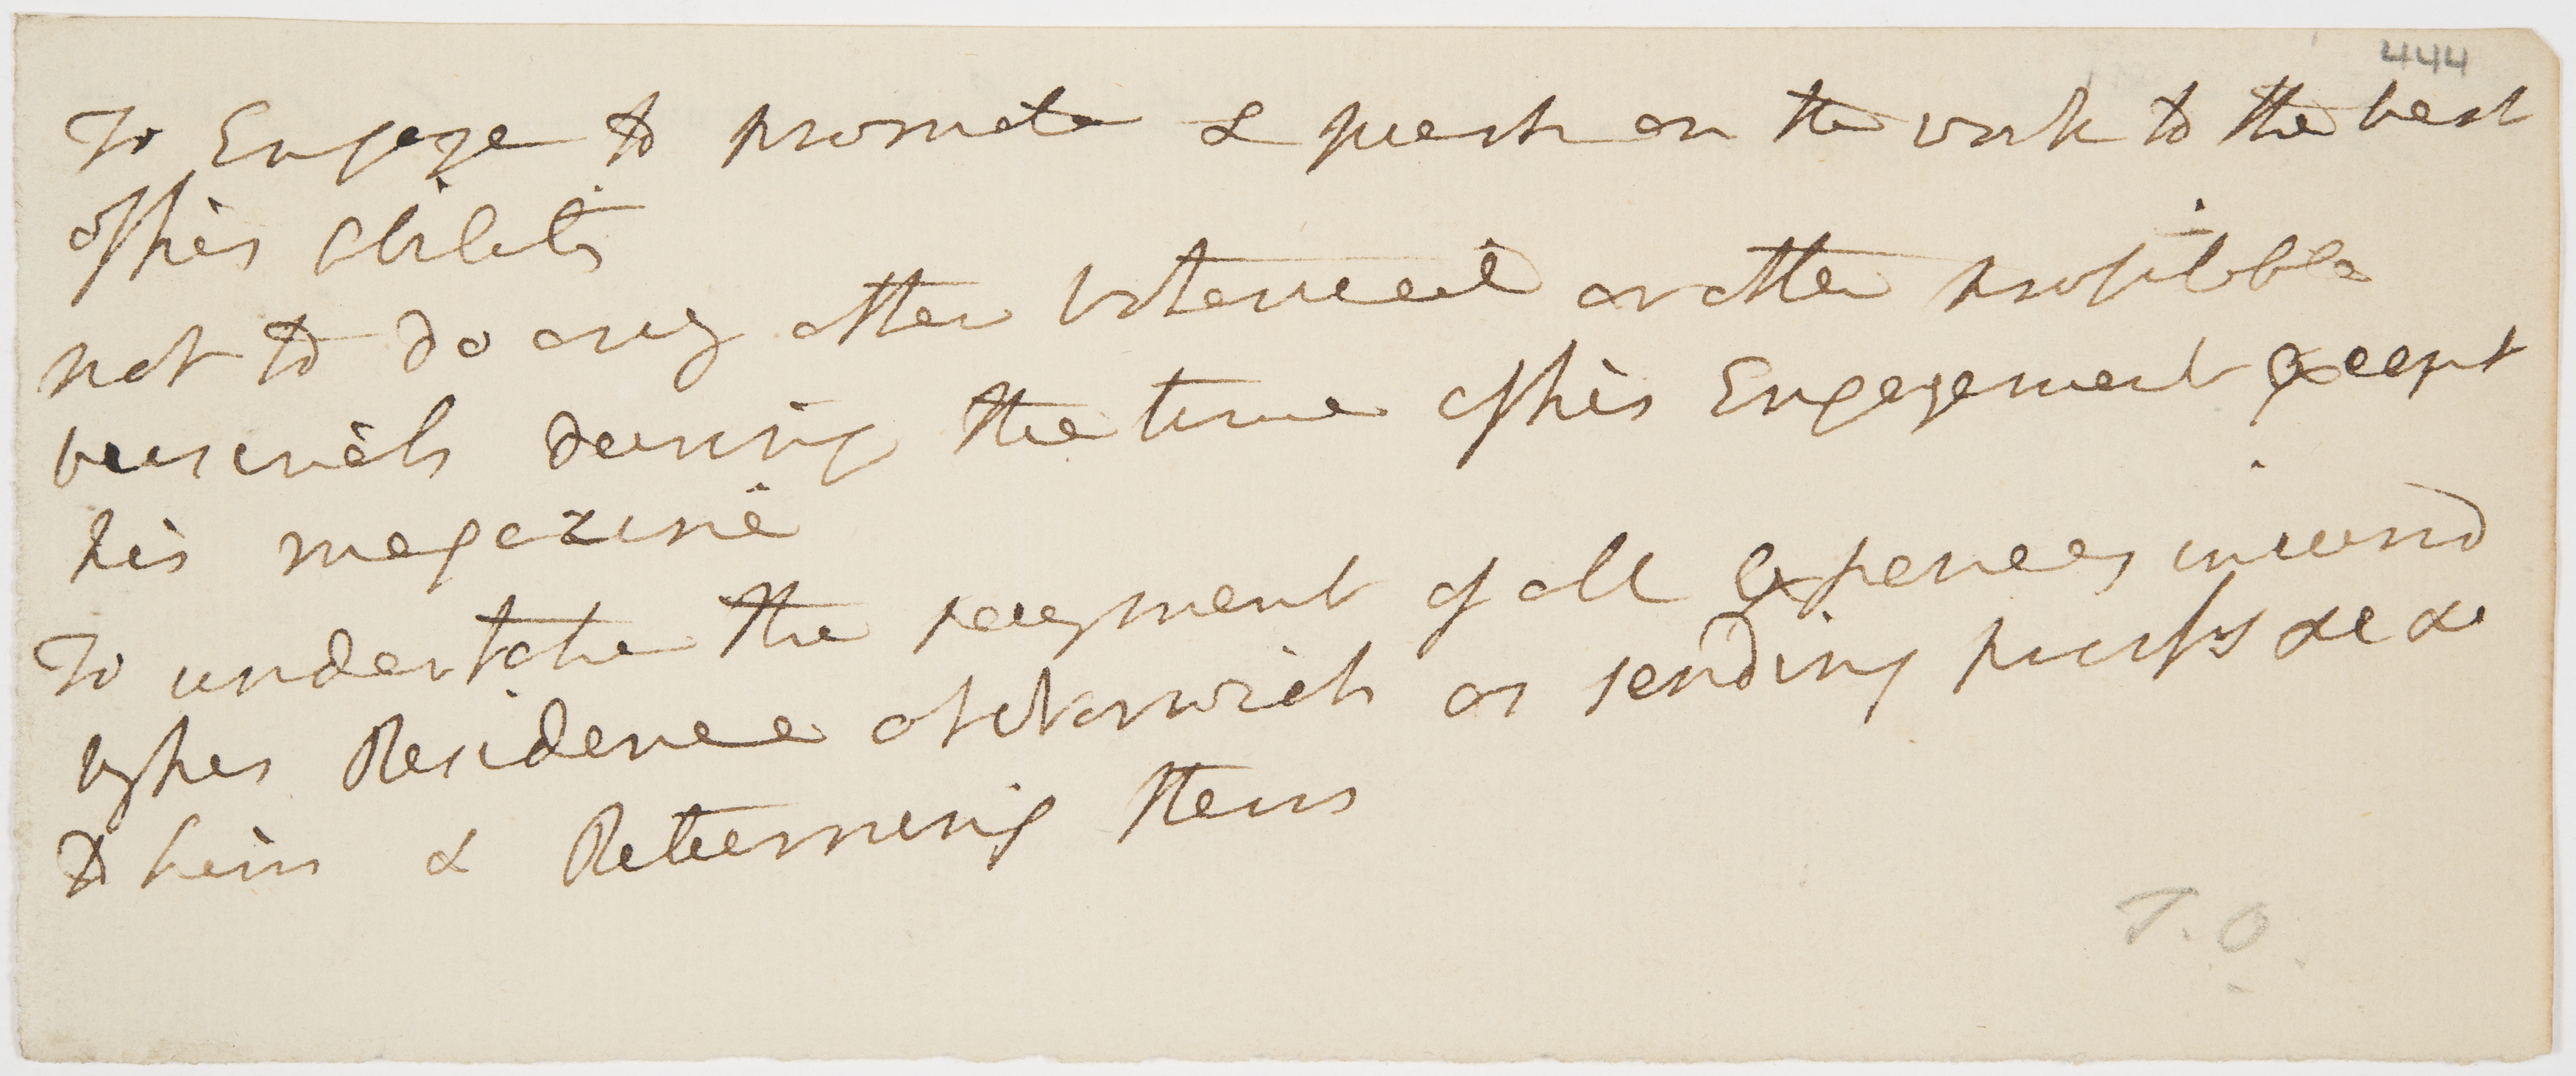 444
To Engage to promote & push on the work to the best
of his abilits
not to do any other botanical or other profitable
businees during the time of his Engagement except
his magazine
To undertake the payment of all Expences incurrd
by his Residence at Norwich or sending proofs &c &c
to him & Returning them
T.O